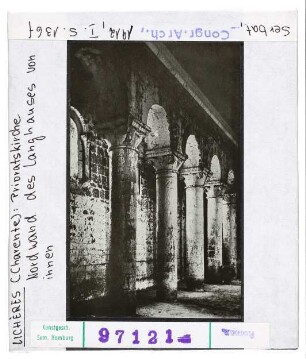 Serbat,
Congr. Arch.,
1912,
I, S. 136f
LICHÈRES (Charente): Prioratskirche
Nordwand des Langhauses von
ihnen
Kunstgesch.
Sem. Hamburg
97121